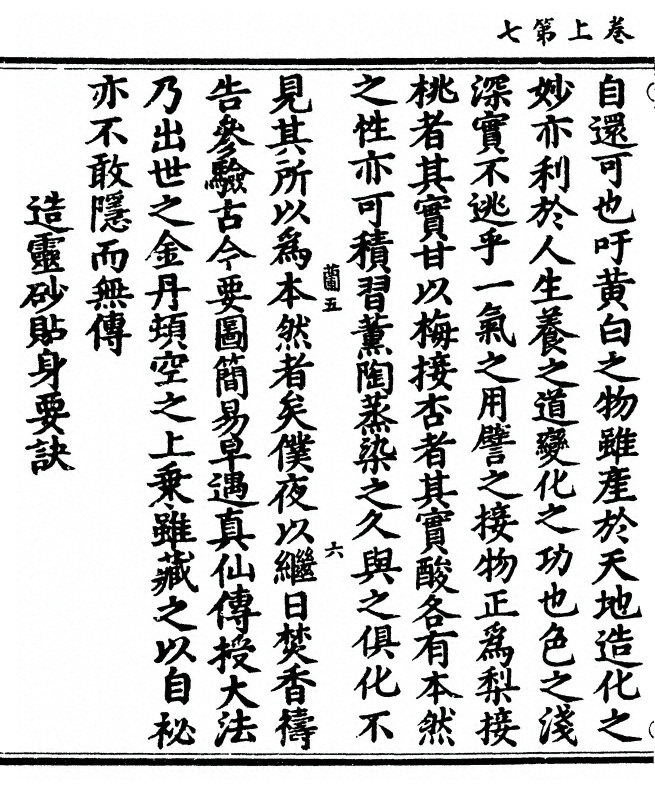 卷上第七
自還可也吁黄白之物雖産於天地造化之
妙亦利於人生養之道變化之功也色之淺
深實不逃乎一氣之用譬之接物正爲梨接
桃者其實甘以梅接杏者其實酸各有本然
之性亦可積習薰陶蒸染之久與之俱化不
蘭五
六
見其所以爲本然者矣僕夜以繼日焚香禱
告參驗古今要圖簡易早遇真仙傳授大法
乃出世之金丹頓空之上乗雖藏之以自祕
亦不敢隱而無傳
造靈砂貼身要訣